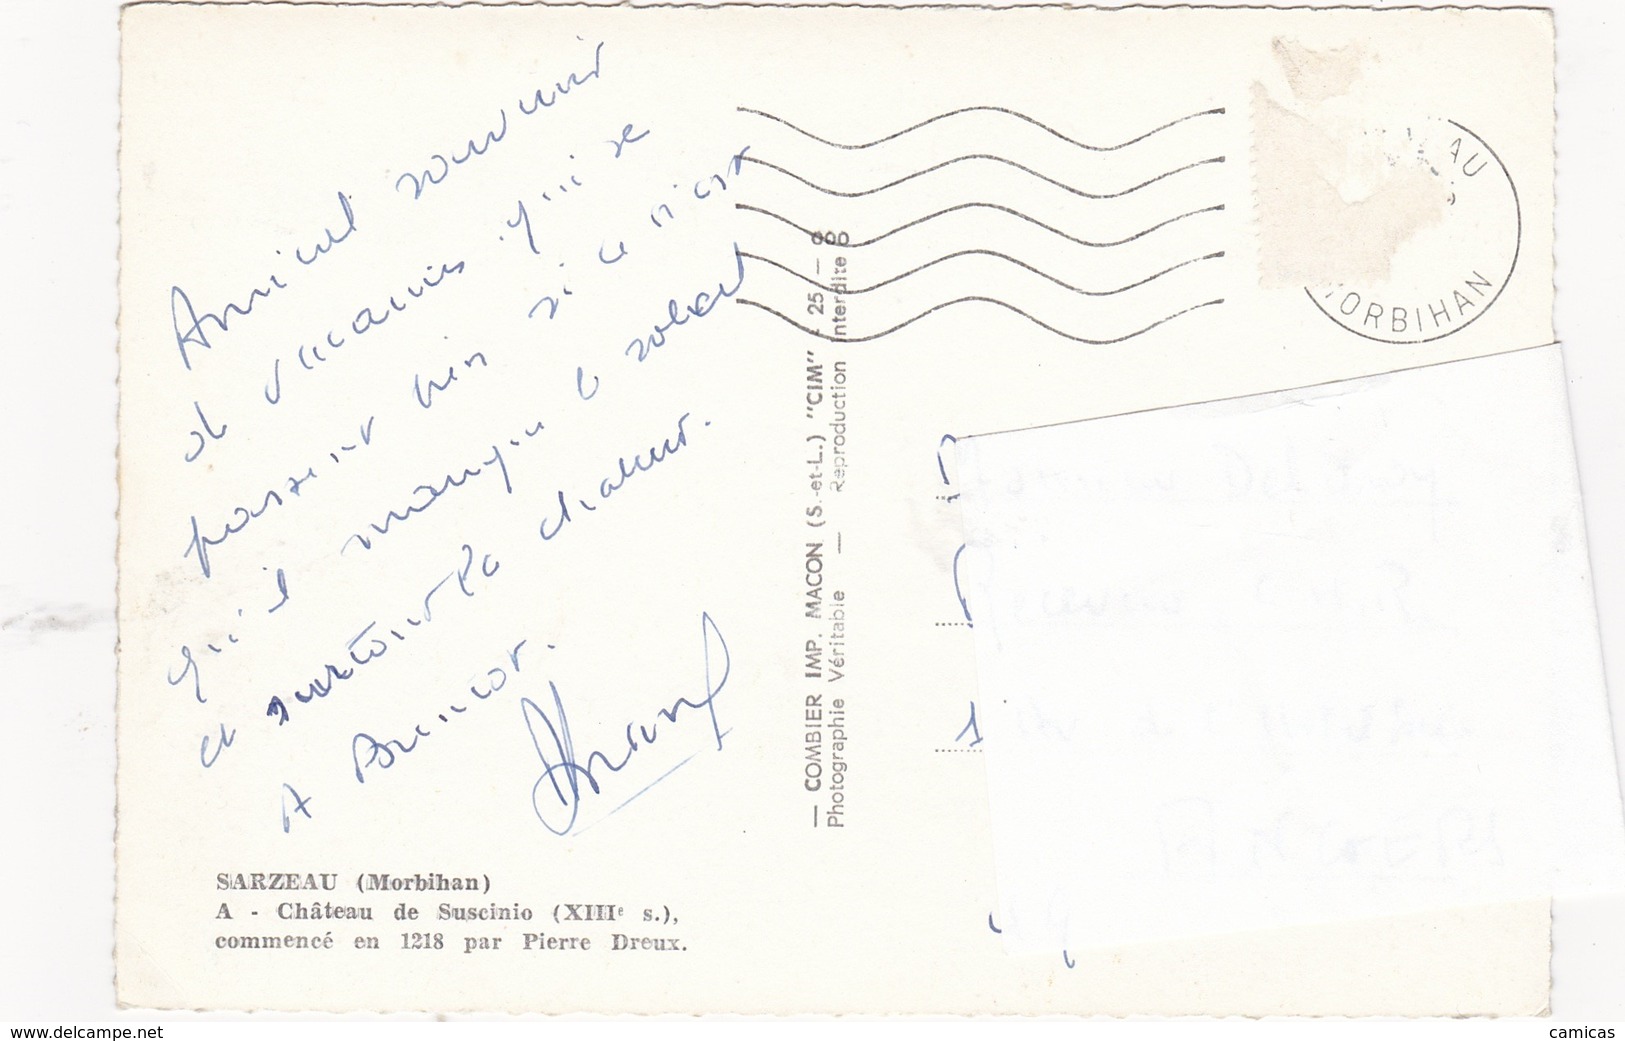 Amical souvenir
de vacances qui se
passent bien si ce n'est
qu'il manque le soleil
et surtout la chaleur.
A Bientôt.
SARZEAU (Morbihan)
A - Château de Suscinio (XIIIe s.),
commencé en 1218 par Pierre Dreux.
— COMBIER IMP. MACON (S.-et-L.) "CIM" - 25 —
Photographie Véritable — Reproduction interdite
AU
MORBIHAN
1
www.delcampe.net
camicas